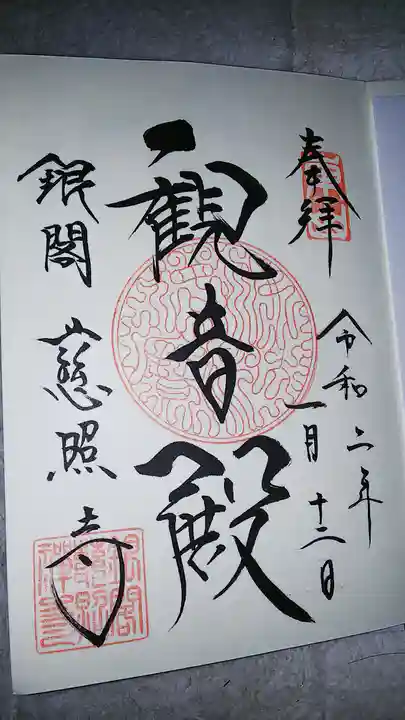 奉拝
令和二年
一月十二日
観音殿
銀閣慈照寺